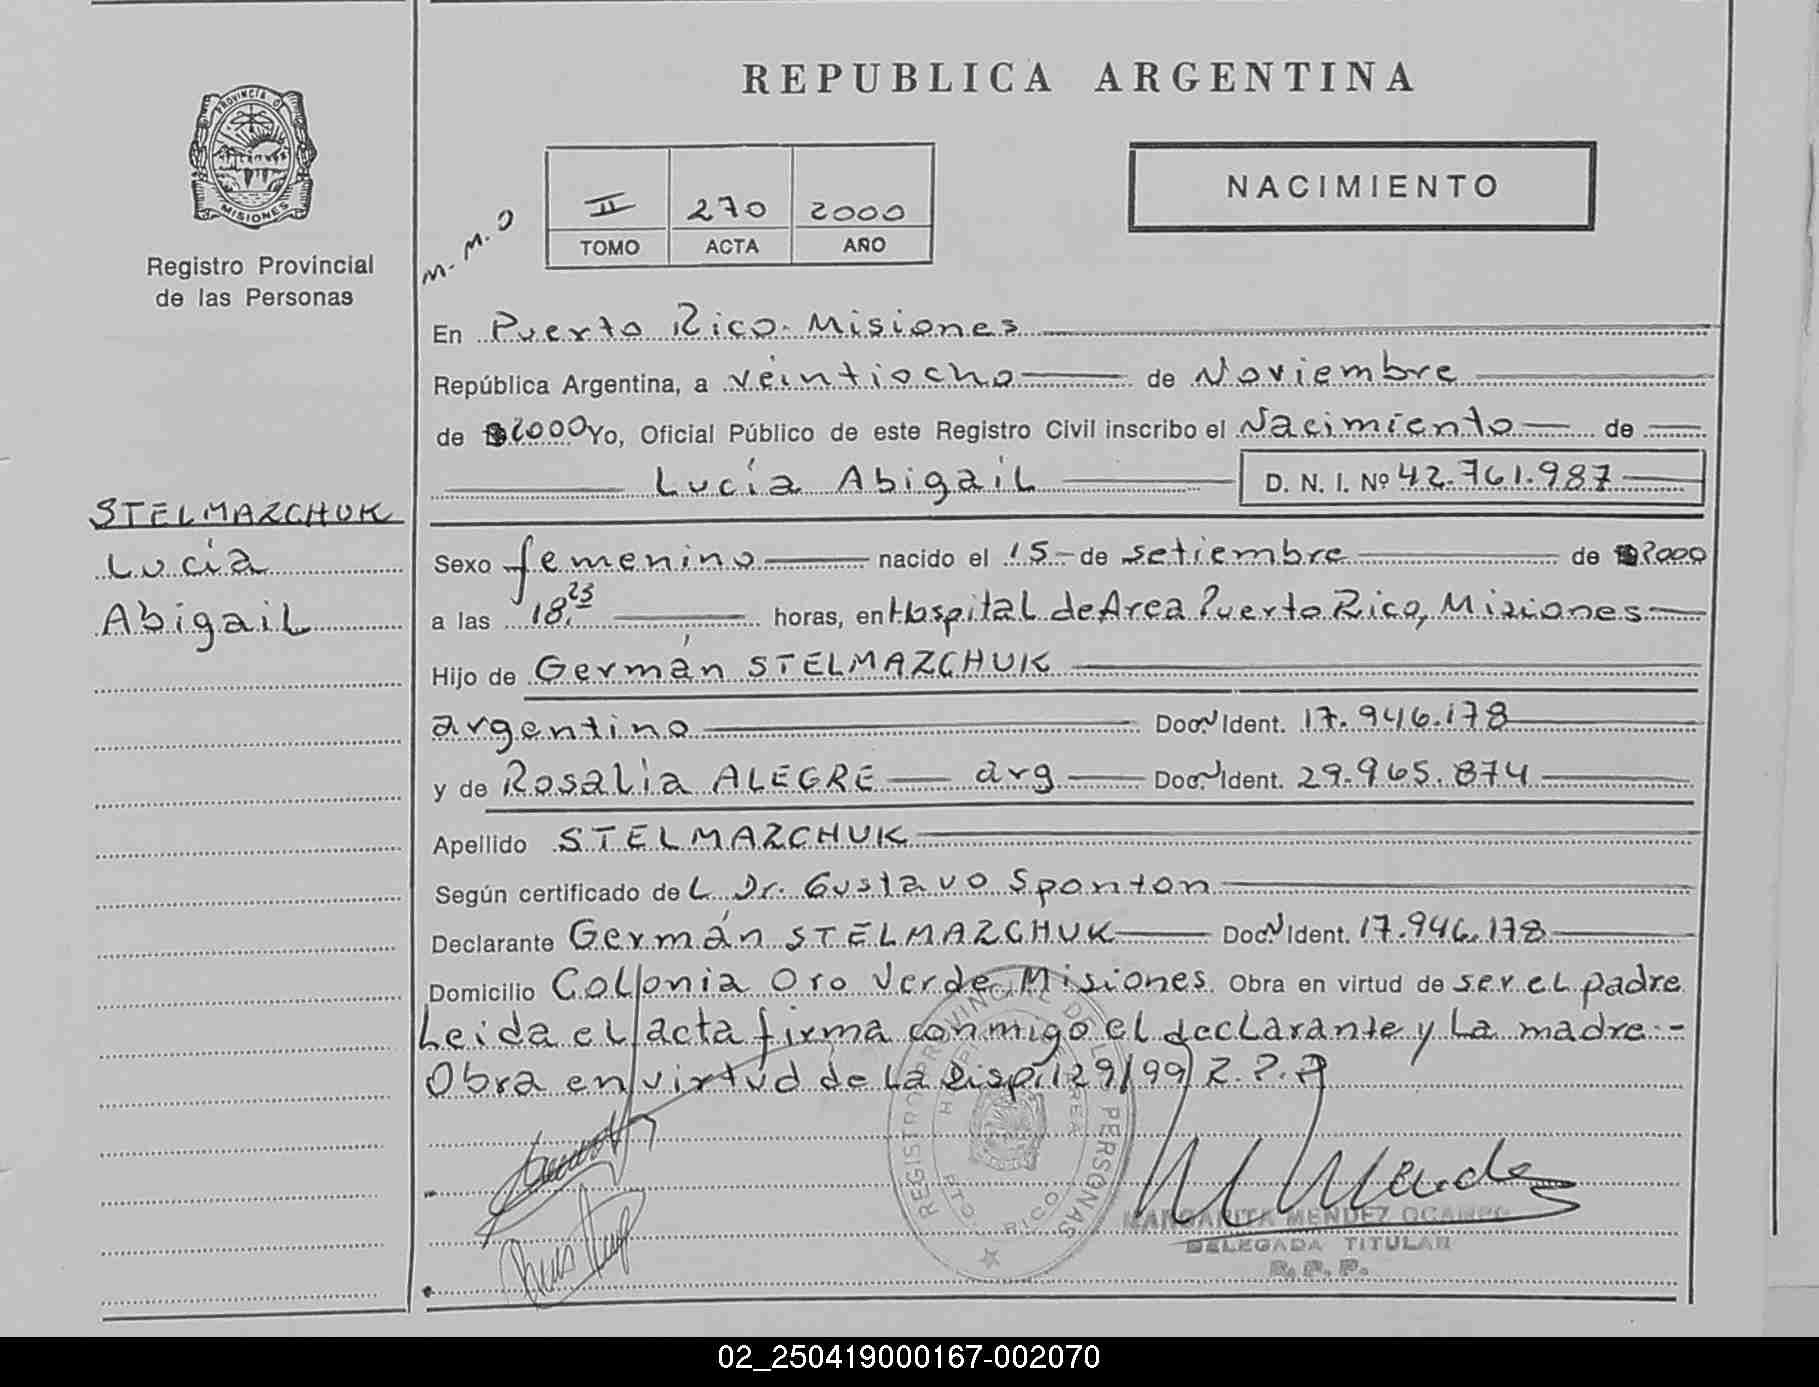 REPUBLICA ARGENTINA
PROVINCIA DE
MISIONES
Registro Provincial
de las Personas
II 270 2000
TOMO ACTA AÑO
NACIMIENTO
M.M.O
En Puerto Rico. Misiones
República Argentina, a veintiocho de Noviembre
de 2000 Yo, Oficial Público de este Registro Civil inscribo el Nacimiento de
Lucía Abigail D. N. I. Nº 42.761.987
STELMAZCHUK
Lucía
Abigail
Sexo femenino nacido el 15 de setiembre de 2000
a las 18.23 horas, en Hospital de Area Puerto Rico, Misiones
Hijo de Germán STELMAZCHUK
argentino Doc. Ident. 17.946.178
y de Rosalia ALEGRE arg Doc. Ident. 29.965.874
Apellido STELMAZCHUK
Según certificado de L Dr. Gustavo Sponton
Declarante Germán STELMAZCHUK Doc. Ident. 17.946.178
Domicilio Colonia Oro Verde Misiones Obra en virtud de ser el padre
Leida el acta firma conmigo el declarante y la madre.-
Obra en virtud de la Disp. 129/99 R.P.P
REGISTRO PROVINCIAL DE LAS PERSONAS
PTO. RICO
MARGARITA MENDEZ OCAMPO
DELEGADA TITULAR
R. P. P.
02_250419000167-002070